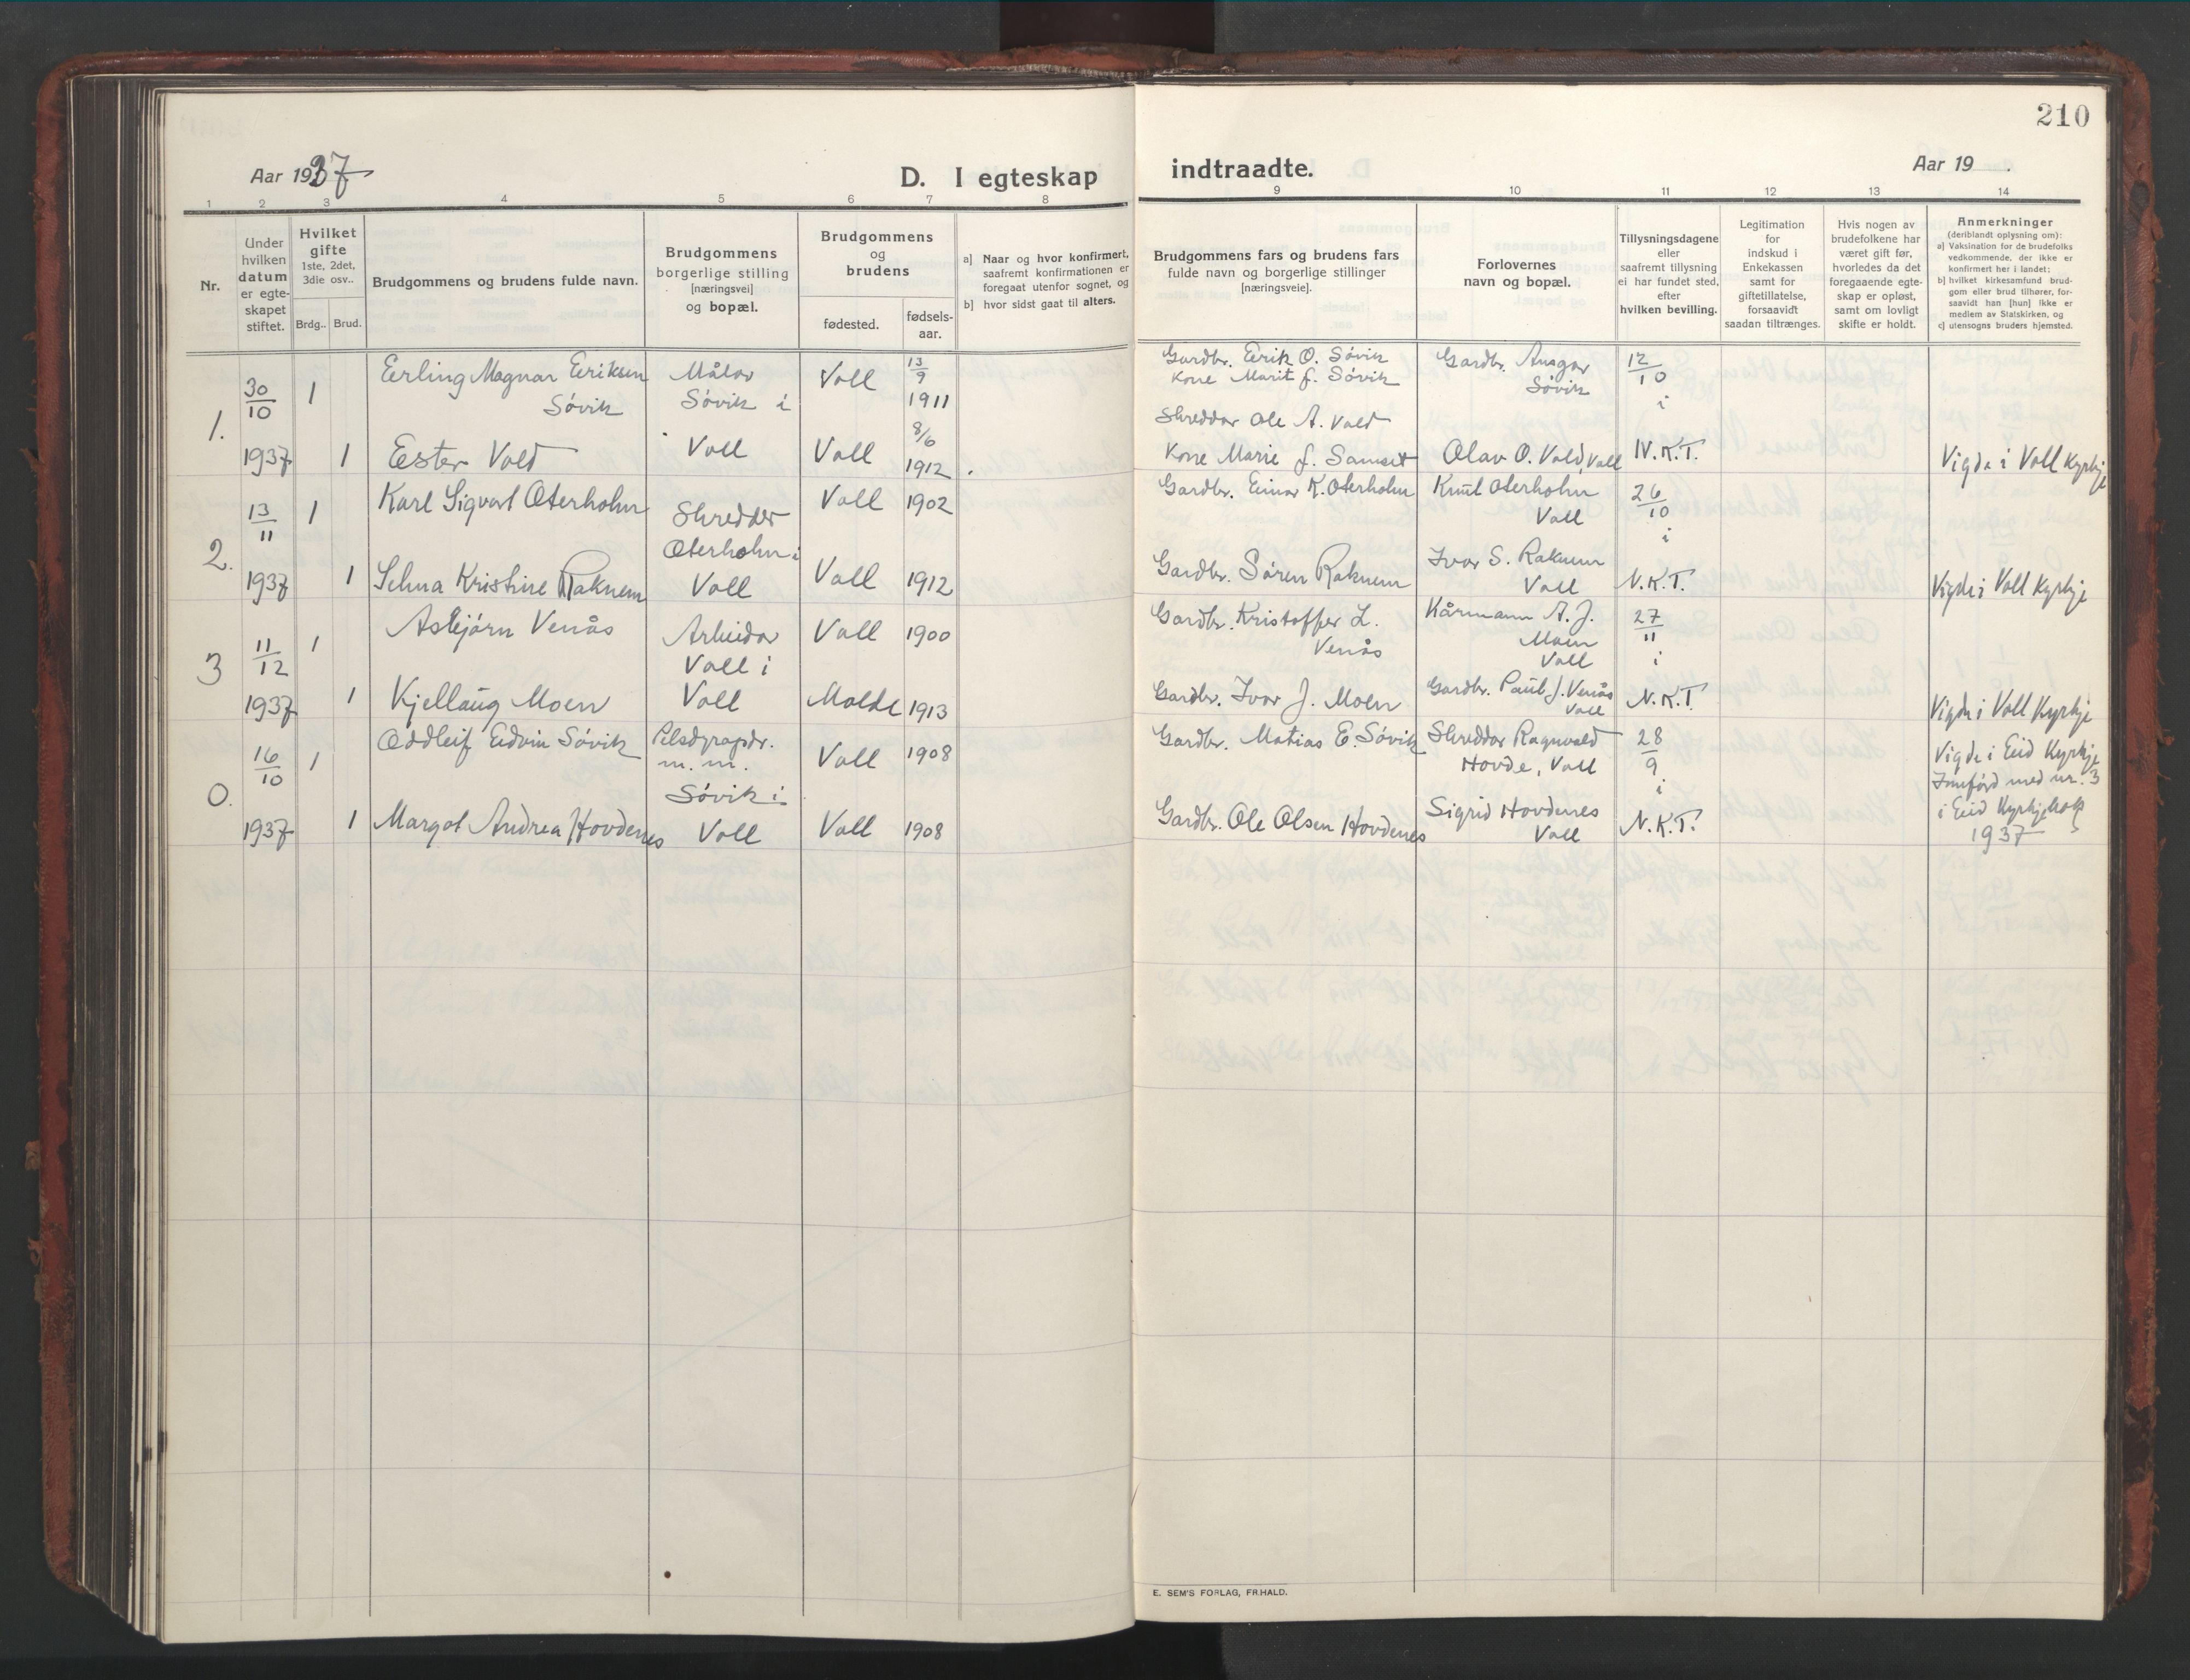 210
Aar 1937
D. I egteskap indtraadte.
Aar 19 .
1 2 3 4 5 6 7 8 9 10 11 12 13 14
Nr.
Under hvilken datum er egte-skapet stiftet.
Hvilket gifte
1ste, 2det, 3die osv..
Brdg.. Brud.
Brudgommens og brudens fulde navn.
Brudgommens
borgerlige stilling
[næringsvei]
og bopæl.
Brudgommens
og
brudens
fødested.
fødsels-
aar.
a] Naar og hvor konfirmert,
saafremt konfirmationen er
foregaat utenfor sognet, og
b] hvor sidst gaat til alters.
Brudgommens fars og brudens fars
fulde navn og borgerlige stillinger
[næringsveie].
Forlovernes
navn og bopæl.
Tillysningsdagene
eller
saafremt tillysning
ei har fundet sted,
efter
hvilken bevilling.
Legitimation
for
indskud i
Enkekassen
samt for
giftetillatelse,
forsaavidt
saadan tiltrænges.
Hvis nogen av
brudefolkene har
været gift før,
hvorledes da det
foregaaende egte-
skap er opløst,
samt om lovligt
skifte er holdt.
Anmerkninger
(deriblandt oplysning om):
a] Vaksination for de brudefolks
vedkommende, der ikke er
konfirmert her i landet;
b] hvilket kirkesamfund brud-
gom eller brud tilhører, for-
saavidt han [hun] ikke er
medlem av Statskirken, og
c] utensogns bruders hjemsted.
1. 30/10 1937
1 Eerling Magnar Eeriksen Søvik
Målar Søvik i Voll
Voll 13/9 1911
Gardbr. Eerik O. Søvik
Kone Marit f. Søvik
Gardbr. Ansgar Søvik
12/10 i N.K.T.
1 Eester Vold
Voll 8/6 1912.
Skreddar Ole A. Vold
Kone Marie f. Samset
Olav O. Vold Voll
Vigde i Voll Kyrkje
2. 13/11 1937
1 Karl Sigvart Oterholm
Skredder Oterholm i Voll
Voll 1902
Gardbr. Einar K. Oterholm
Knut Oterholm Voll
26/10 i N.K.T.
1 Selma Kristine Raknem
Voll 1912
Gardbr. Søren Raknem
Ivar S. Raknem Voll
Vigde i Voll Kyrkje
3 11/12 1937
1 Asbjørn Venås
Arbeidar Voll i Voll
Voll 1900
Gardbr. Kristoffer L. Venås
Kårmann A. J. Moen Voll
27/11 i N.K.T.
1 Kjellaug Moen
Molde 1913
Gardbr. Ivar J. Moen
Gardbr. Paul J. Venås Voll
Vigde i Voll Kyrkje
0. 16/10 1937
1 Oddleif Edvin Søvik
Pelsdyropdr. m.m. Søvik i Voll
Voll 1908
Gardbr. Matias E. Søvik
Skreddar Ragnvald Hovde, Voll
28/9 i N.K.T.
1 Margot Andrea Hovdenes
Voll 1908
Gardbr. Ole Olsen Hovdenes
Sigrid Hovdenes Voll
Vigde i Eid Kyrkje
Innførd med nr. 3
i Eid Kyrkjebok
1937
E. SEM'S FORLAG, FR.HALD.